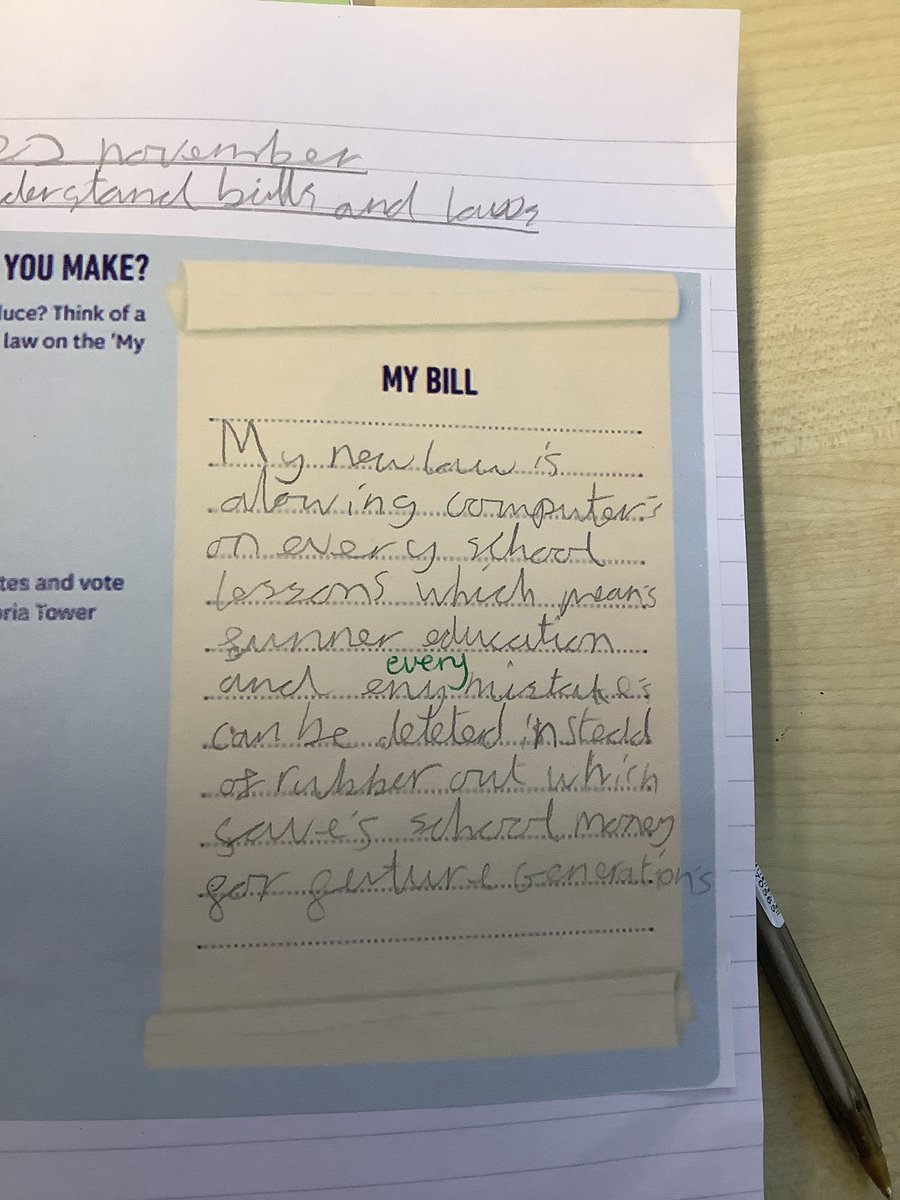 november
derstand bills and laws
YOU MAKE?
luce? Think of a
law on the 'My
MY BILL
My new law is
alowing computer's
on every school
lessons which means
funner education
every
and eny mistakes
can be deleted instedd
of rubber out which
save's school money
for future Generation's
tes and vote
oria Tower